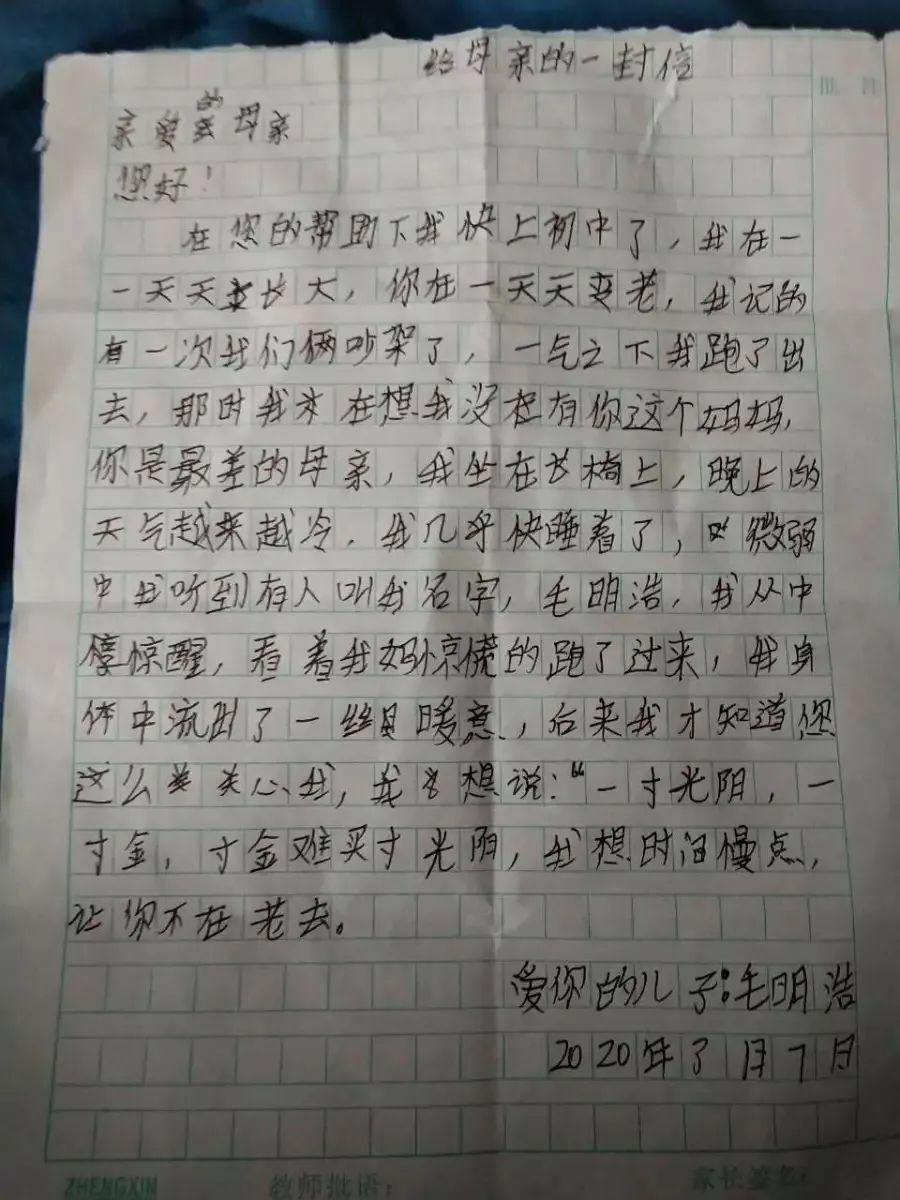 给母亲的一封信
批 注
亲爱的母亲
您好！
在您的帮助下我快上初中了，我在一
一天天变长大，你在一天天变老，我记的
有一次我们俩吵架了，一气之下我跑了出
去，那时我在想我没有你这个妈妈，
你是最差的母亲，我坐在长椅上，晚上的
天气越来越冷．我几乎快睡着了，微弱
中我听到有人叫我名字，毛明浩，我从中
惊醒，看着我妈惊慌的跑了过来，我身
体中流出了一丝暖意，后来我才知道您
这么关心我，我想说：“一寸光阴，一
寸金，寸金难买寸光阴，我想时间慢点，
让你不在老去。
爱你的儿子：毛明浩
2020年3月7日
ZHENGXIN 教师批语： 家长签名：